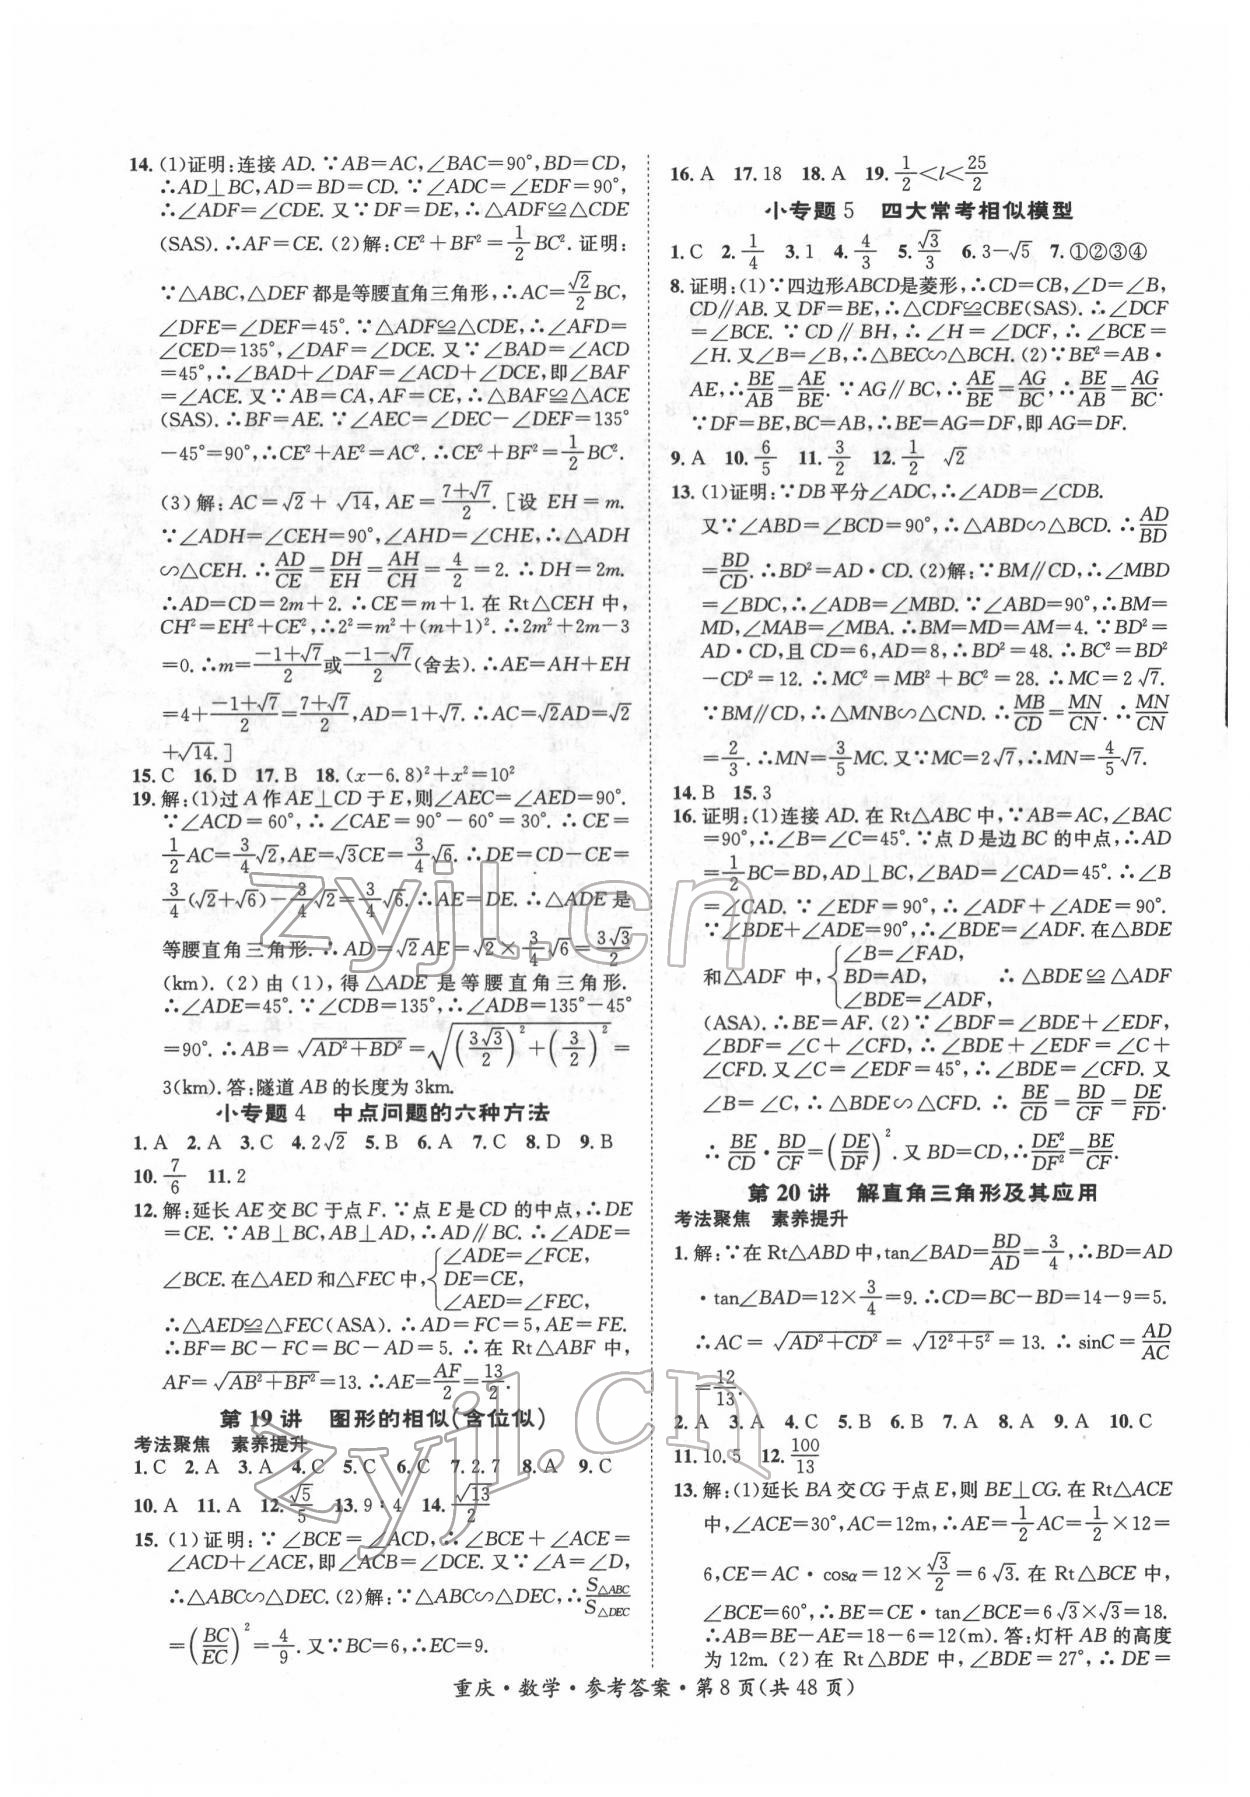 14. (1)证明:连接 AD. ∵AB=AC,∠BAC=90°,BD=CD,
∴AD⊥BC,AD=BD=CD. ∵∠ADC=∠EDF=90°,
∴∠ADF=∠CDE. 又∵DF=DE,∴△ADF≌△CDE
(SAS). ∴AF=CE. (2)解:CE²+BF²=1/2 BC². 证明:
∵△ABC,△DEF都是等腰直角三角形,∴AC=√2/2 BC,
∠DFE=∠DEF=45°. ∵△ADF≌△CDE,∴∠AFD=
∠CED=135°,∠DAF=∠DCE. 又∵∠BAD=∠ACD
=45°,∴∠BAD+∠DAF=∠ACD+∠DCE,即∠BAF
=∠ACE. 又∵AB=CA,AF=CE,∴△BAF≌△ACE
(SAS). ∴BF=AE. ∵∠AEC=∠DEC-∠DEF=135°
-45°=90°,∴CE²+AE²=AC². ∴CE²+BF²=1/2 BC².
(3)解:AC=√2+√14,AE=(7+√7)/2. [设 EH=m.
∵∠ADH=∠CEH=90°,∠AHD=∠CHE,∴△ADH
∽△CEH. ∴AD/CE=DH/EH=AH/CH=4/2=2. ∴DH=2m.
∴AD=CD=2m+2. ∴CE=m+1. 在 Rt△CEH 中,
CH²=EH²+CE²,∴2²=m²+(m+1)². ∴2m²+2m-3
=0. ∴m=(-1+√7)/2或(-1-√7)/2(舍去). ∴AE=AH+EH
=4+(-1+√7)/2=(7+√7)/2,AD=1+√7. ∴AC=√2AD=√2
+√14. ]
15. C 16. D 17. B 18. (x-6.8)²+x²=10²
19. 解:(1)过 A 作 AE⊥CD 于 E,则∠AEC=∠AED=90°.
∵∠ACD=60°,∴∠CAE=90°-60°=30°. ∴CE=
1/2 AC=3/4 √2,AE=√3CE=3/4 √6. ∴DE=CD-CE=
3/4(√2+√6)-3/4 √2=3/4 √6. ∴AE=DE. ∴△ADE 是
等腰直角三角形. ∴AD=√2AE=√2×3/4 √6=3√3/2
(km). (2)由(1),得△ADE 是等腰直角三角形.
∴∠ADE=45°. ∵∠CDB=135°,∴∠ADB=135°-45°
=90°. ∴AB=√(AD²+BD²)=√((3√3/2)²+(3/2)²)=
3(km). 答:隧道 AB 的长度为 3km.
小专题 4 中点问题的六种方法
1. A 2. A 3. C 4. 2√2 5. B 6. A 7. C 8. D 9. B
10. 7/6 11. 2
12. 解:延长 AE 交 BC 于点 F. ∵点 E 是 CD 的中点,∴DE
=CE. ∵AB⊥BC,AB⊥AD,∴AD∥BC. ∴∠ADE=
∠BCE. 在△AED 和△FEC 中,{∠ADE=∠FCE,
DE=CE,
∠AED=∠FEC,
∴△AED≌△FEC(ASA). ∴AD=FC=5,AE=FE.
∴BF=BC-FC=BC-AD=5. ∴在 Rt△ABF 中,
AF=√(AB²+BF²)=13. ∴AE=AF/2=13/2.
第 19 讲 图形的相似(含位似)
考法聚焦 素养提升
1. C 2. A 3. A 4. C 5. C 6. C 7. 2.7 8. A 9. C
10. A 11. A 12. √5/5 13. 9∶4 14. √13/2
15. (1)证明:∵∠BCE=∠ACD,∴∠BCE+∠ACE=
∠ACD+∠ACE,即∠ACB=∠DCE. 又∵∠A=∠D,
∴△ABC∽△DEC. (2)解:∵△ABC∽△DEC,∴S△ABC/S△DEC
=(BC/EC)²=4/9. 又∵BC=6,∴EC=9.
16. A 17. 18 18. A 19. 1/2<l<25/2
小专题 5 四大常考相似模型
1. C 2. 1/4 3. 1 4. 4/3 5. √3/3 6. 3-√5 7. ①②③④
8. 证明:(1)∵四边形ABCD是菱形,∴CD=CB,∠D=∠B,
CD∥AB. 又∵DF=BE,∴△CDF≌CBE(SAS). ∴∠DCF
=∠BCE. ∵CD∥BH,∴∠H=∠DCF,∴∠BCE=
∠H. 又∵∠B=∠B,∴△BEC∽△BCH. (2)∵BE²=AB·
AE,∴BE/AB=AE/BE. ∵AG∥BC,∴AE/BE=AG/BC. ∴BE/AB=AG/BC.
∵DF=BE,BC=AB,∴BE=AG=DF,即AG=DF.
9. A 10. 6/5 11. 3/2 12. 1/2 √2
13. (1)证明:∵DB平分∠ADC,∴∠ADB=∠CDB.
又∵∠ABD=∠BCD=90°,∴△ABD∽△BCD. ∴AD/BD
=BD/CD. ∴BD²=AD·CD. (2)解:∵BM∥CD,∴∠MBD
=∠BDC,∴∠ADB=∠MBD. ∵∠ABD=90°,∴BM=
MD,∠MAB=∠MBA. ∴BM=MD=AM=4. ∵BD²=
AD·CD,且 CD=6,AD=8,∴BD²=48. ∴BC²=BD²
-CD²=12. ∴MC²=MB²+BC²=28. ∴MC=2√7.
∵BM∥CD,∴△MNB∽△CND. ∴MB/CD=MN/CN. ∴MN/CN
=2/3. ∴MN=3/5 MC. 又∵MC=2√7,∴MN=4/5 √7.
14. B 15. 3
16. 证明:(1)连接 AD. 在 Rt△ABC 中,∵AB=AC,∠BAC
=90°,∴∠B=∠C=45°. ∵点 D 是边 BC 的中点,∴AD
=1/2 BC=BD,AD⊥BC,∠BAD=∠CAD=45°. ∴∠B
=∠CAD. ∵∠EDF=90°,∴∠ADF+∠ADE=90°.
∵∠BDE+∠ADE=90°,∴∠BDE=∠ADF. 在△BDE
和△ADF 中,{∠B=∠FAD,
BD=AD,
∠BDE=∠ADF, ∴△BDE≌△ADF
(ASA). ∴BE=AF. (2)∵∠BDF=∠BDE+∠EDF,
∠BDF=∠C+∠CFD,∴∠BDE+∠EDF=∠C+
∠CFD. 又∠C=∠EDF=45°,∴∠BDE=∠CFD. 又
∠B=∠C,∴△BDE∽△CFD. ∴BE/CD=BD/CF=DE/FD.
∴BE/CD·BD/CF=(DE/DF)². 又∵BD=CD,∴DE²/DF²=BE/CF.
第 20 讲 解直角三角形及其应用
考法聚焦 素养提升
1. 解:∵在 Rt△ABD 中,tan∠BAD=BD/AD=3/4,∴BD=AD
·tan∠BAD=12×3/4=9. ∴CD=BC-BD=14-9=5.
∴AC=√(AD²+CD²)=√(12²+5²)=13. ∴sinC=AD/AC
=12/13.
2. A 3. A 4. C 5. B 6. B 7. A 8. A 9. A 10. C
11. 10.5 12. 100/13
13. 解:(1)延长 BA 交 CG 于点 E,则 BE⊥CG. 在 Rt△ACE
中,∠ACE=30°,AC=12m,∴AE=1/2 AC=1/2×12=
6,CE=AC·cosα=12×√3/2=6√3. 在 Rt△BCE 中,
∠BCE=60°,∴BE=CE·tan∠BCE=6√3×√3=18.
∴AB=BE-AE=18-6=12(m). 答:灯杆 AB 的高度
为 12m. (2)在 Rt△BDE 中,∠BDE=27°,∴DE=
重庆·数学·参考答案·第 8 页(共 48 页)
zyjl.cn
zyjl.cn